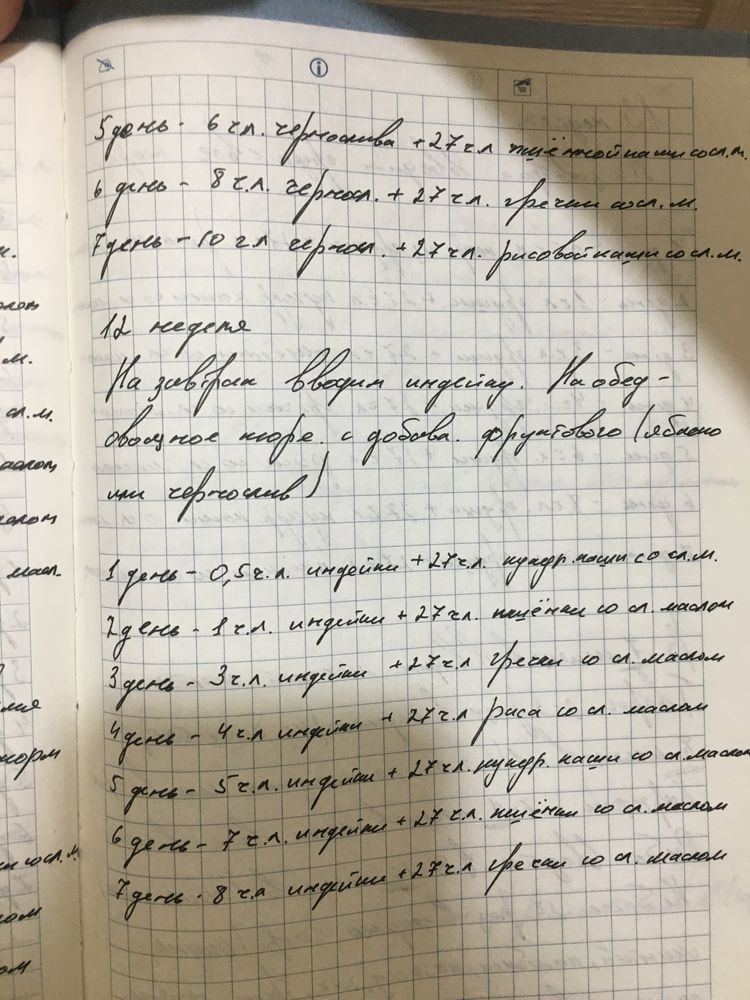 5 день - 6 ч.л. чернослива + 27 ч.л пшённой каши со сл.м.
6 день - 8 ч.л. черносл. + 27 ч.л. гречки со сл.м.
7 день - 10 ч л черносл. + 27 ч л. рисовой каши со сл.м.
12 неделя
На завтрак вводим индейку. На обед -
овощное пюре. с добавл. фруктового (яблоко
или чернослив)
1 день - 0,5 ч.л. индейки + 27 ч.л. кукур. каши со сл.м.
2 день - 1 ч.л. индейки + 27 ч.л. пшёнки со сл. маслом
3 день - 3 ч.л. индейки + 27 ч.л гречки со сл. маслом
4 день - 4 ч.л индейки + 27 ч.л риса со сл. маслом
5 день - 5 ч.л. индейки + 27 ч.л. кукур. каши со сл. маслом
6 день - 7 ч.л. индейки + 27 ч.л. пшёнки со сл. маслом
7 день - 8 ч.л индейки + 27 ч.л гречки со сл. маслом